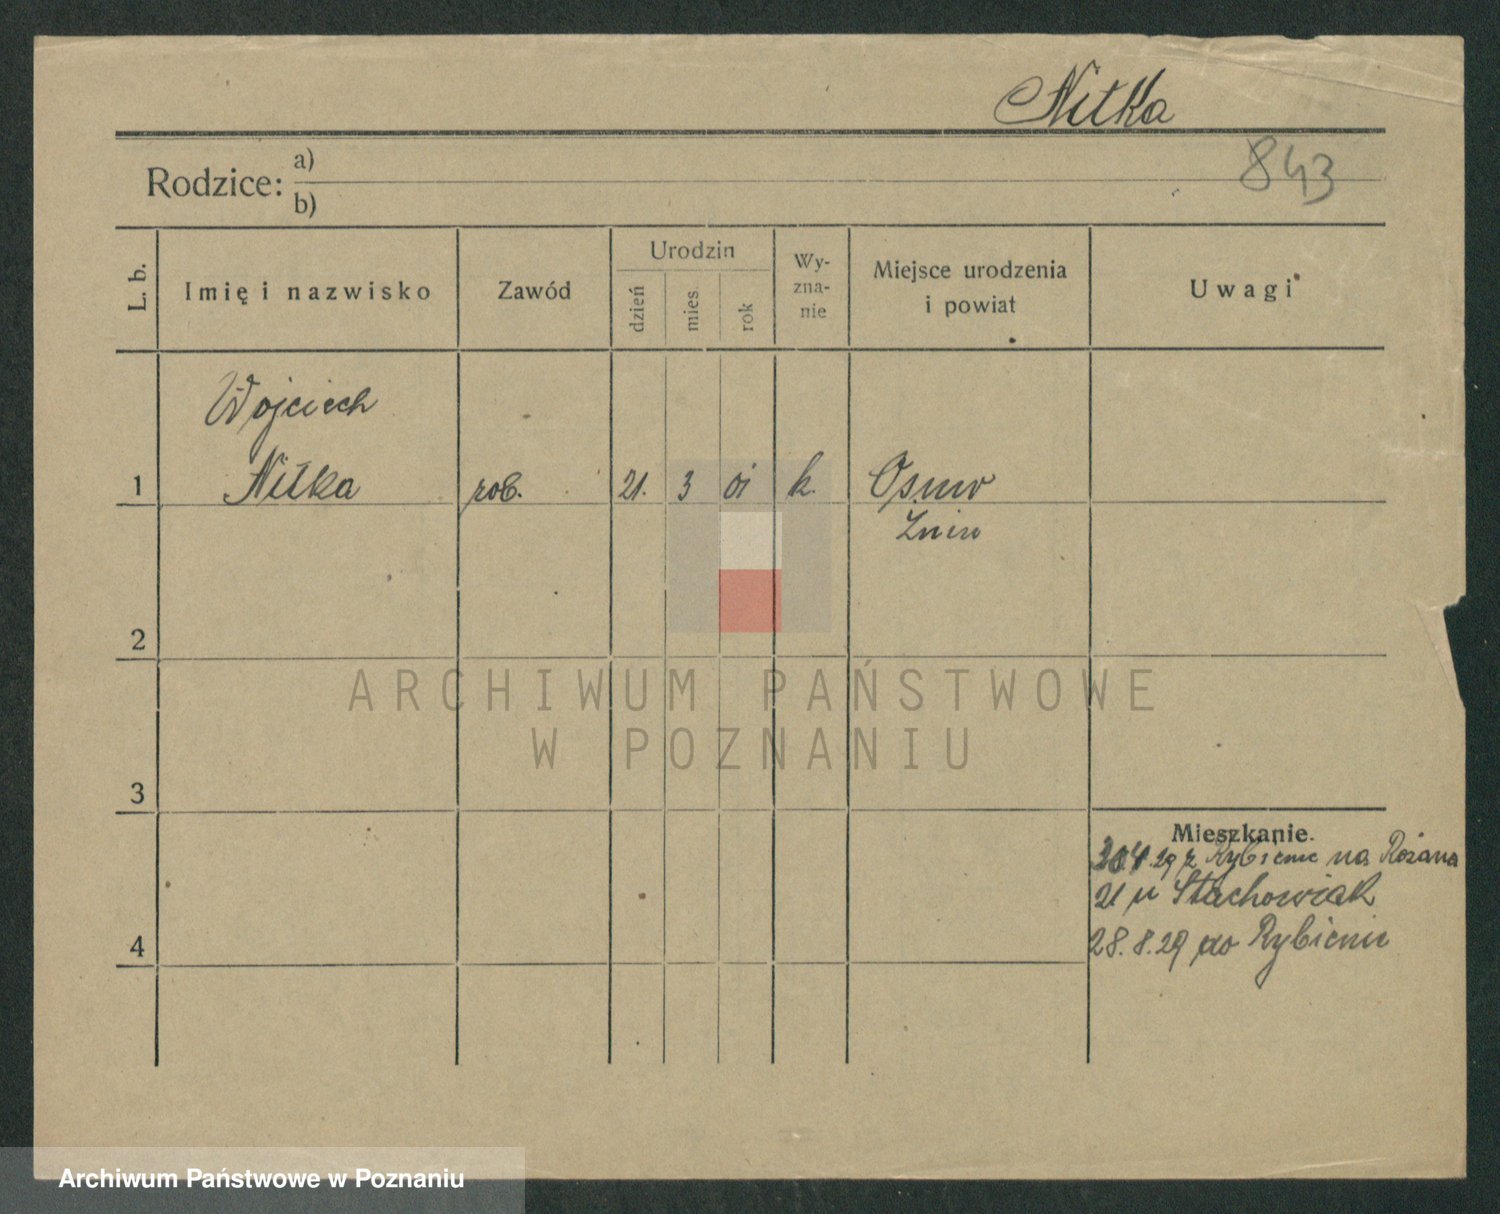 Nitka
843
Rodzice: a)
b)
L. b.
Imię i nazwisko
Zawód
Urodzin
dzień
mies.
rok
Wy-
zna-
nie
Miejsce urodzenia
i powiat
Uwagi
Wojciech
1 Nitka rob. 21. 3 01 k.
Żnin
2
3
4
Mieszkanie.
4.29 z na Różana
21 u Stachowiak
28.8.29 do
ARCHIWUM PAŃSTWOWE
W POZNANIU
Archiwum Państwowe w Poznaniu